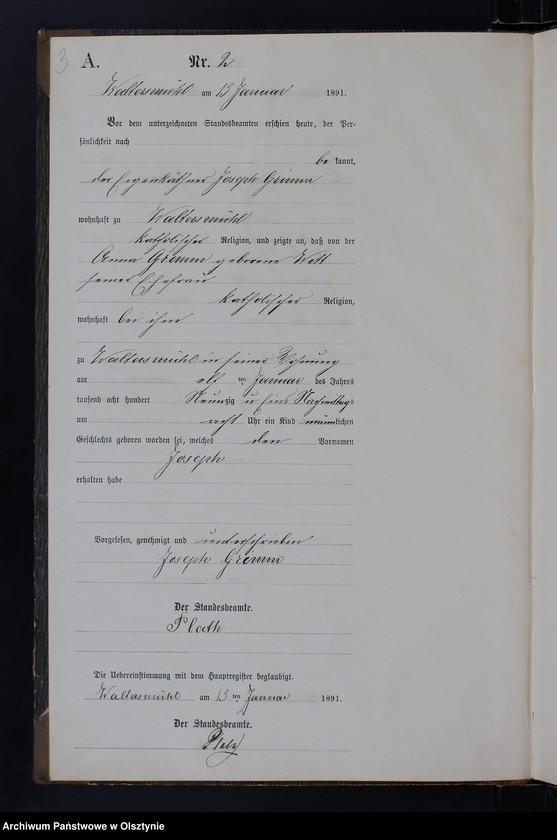 3 A. Nr. 2
Waltersmühl am 13 Januar 1891.
Vor dem unterzeichneten Standesbeamten erschien heute, der Per-
sönlichkeit nach
be kannt,
der Eigenkäthner Joseph Grimm
wohnhaft zu Waltersmühl
katholischer Religion, und zeigte an, daß von der
Anna Grimm geborene Witt
seiner Ehefrau
katholischer Religion,
wohnhaft bei ihm
zu Waltersmühl in seiner Wohnung
am elf ten Januar des Jahres
tausend acht hundert Neunzig u Eins Nachmittags
um acht Uhr ein Kind männlichen
Geschlechts geboren worden sei, welches den Vornamen
Joseph
erhalten habe
Vorgelesen, genehmigt und unterschrieben
Joseph Grimm
Der Standesbeamte.
Plath
Die Uebereinstimmung mit dem Hauptregister beglaubigt.
Waltersmühl am 13 ten Januar 1891.
Der Standesbeamte.
Archiwum Państwowe w Olsztynie